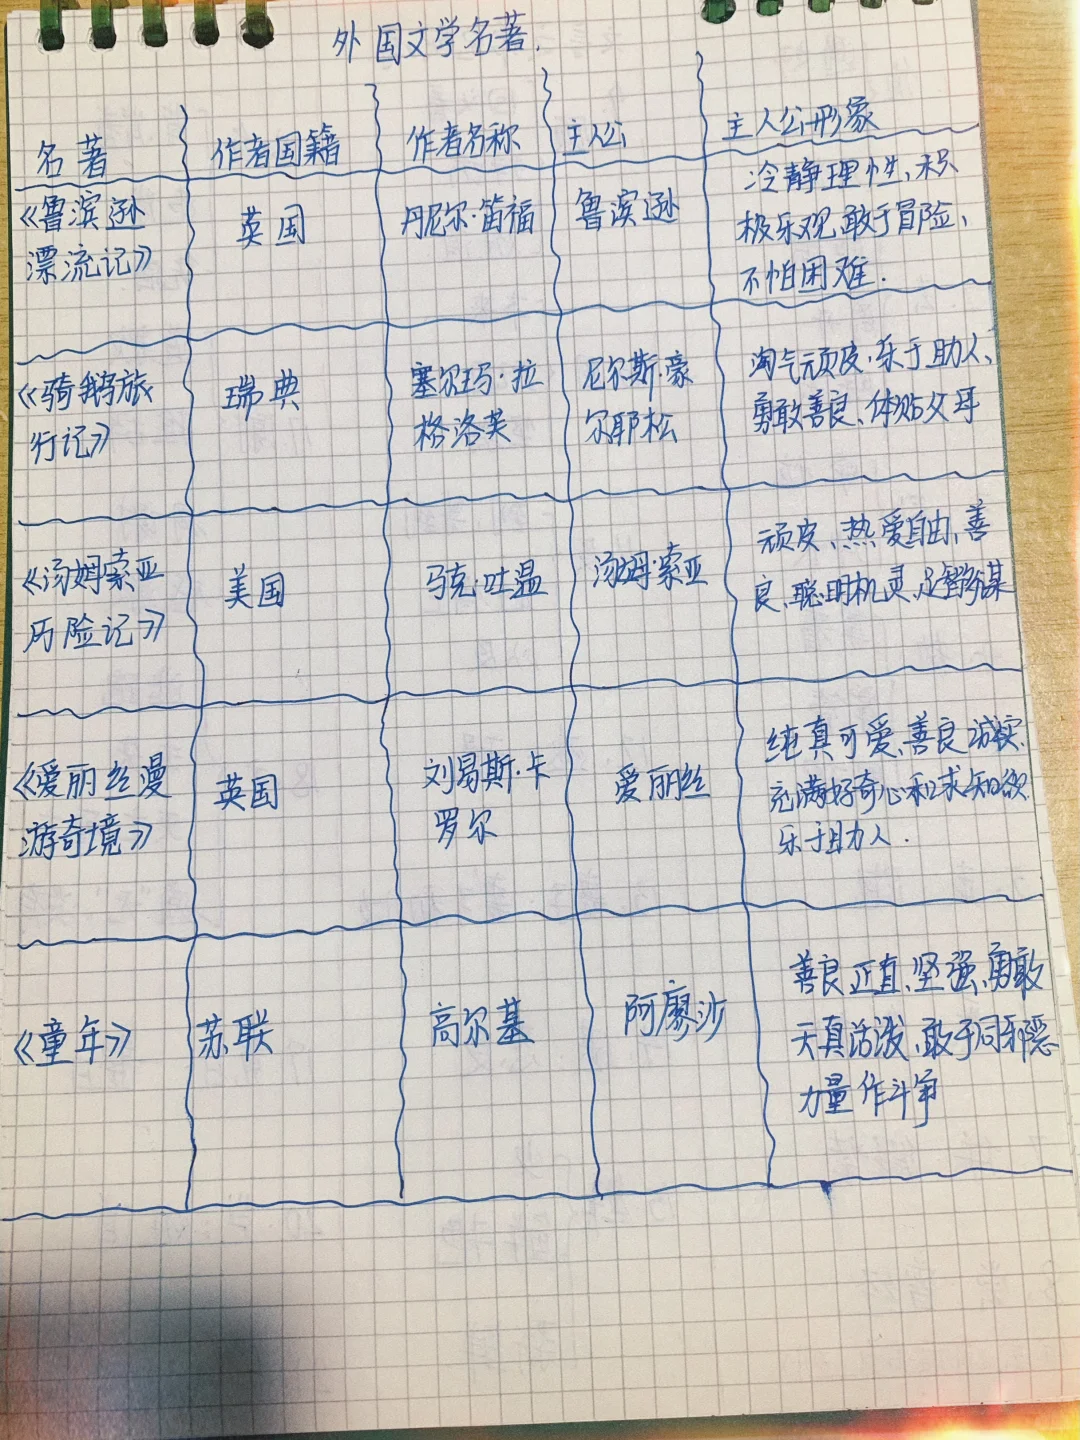 外国文学名著.
名著 作者国籍 作者名称 主人公 主人公形象
《鲁滨逊
漂流记》
英国
丹尼尔·笛福
鲁滨逊
冷静理性、积
极乐观、敢于冒险、
不怕困难.
《骑鹅旅
行记》
瑞典
塞尔玛·拉
格洛芙
尼尔斯·豪
尔耶松
淘气顽皮、乐于助人、
勇敢善良、体贴父母
《汤姆索亚
历险记》
美国
马克·吐温
汤姆·索亚
顽皮、热爱自由、善
良、聪明机灵、足智多谋
《爱丽丝漫
游奇境》
英国
刘易斯·卡
罗尔
爱丽丝
纯真可爱、善良诚实、
充满好奇心和求知欲、
乐于助人.
《童年》
苏联
高尔基
阿廖沙
善良正直、坚强、勇敢
天真活泼、敢于同邪恶
力量作斗争